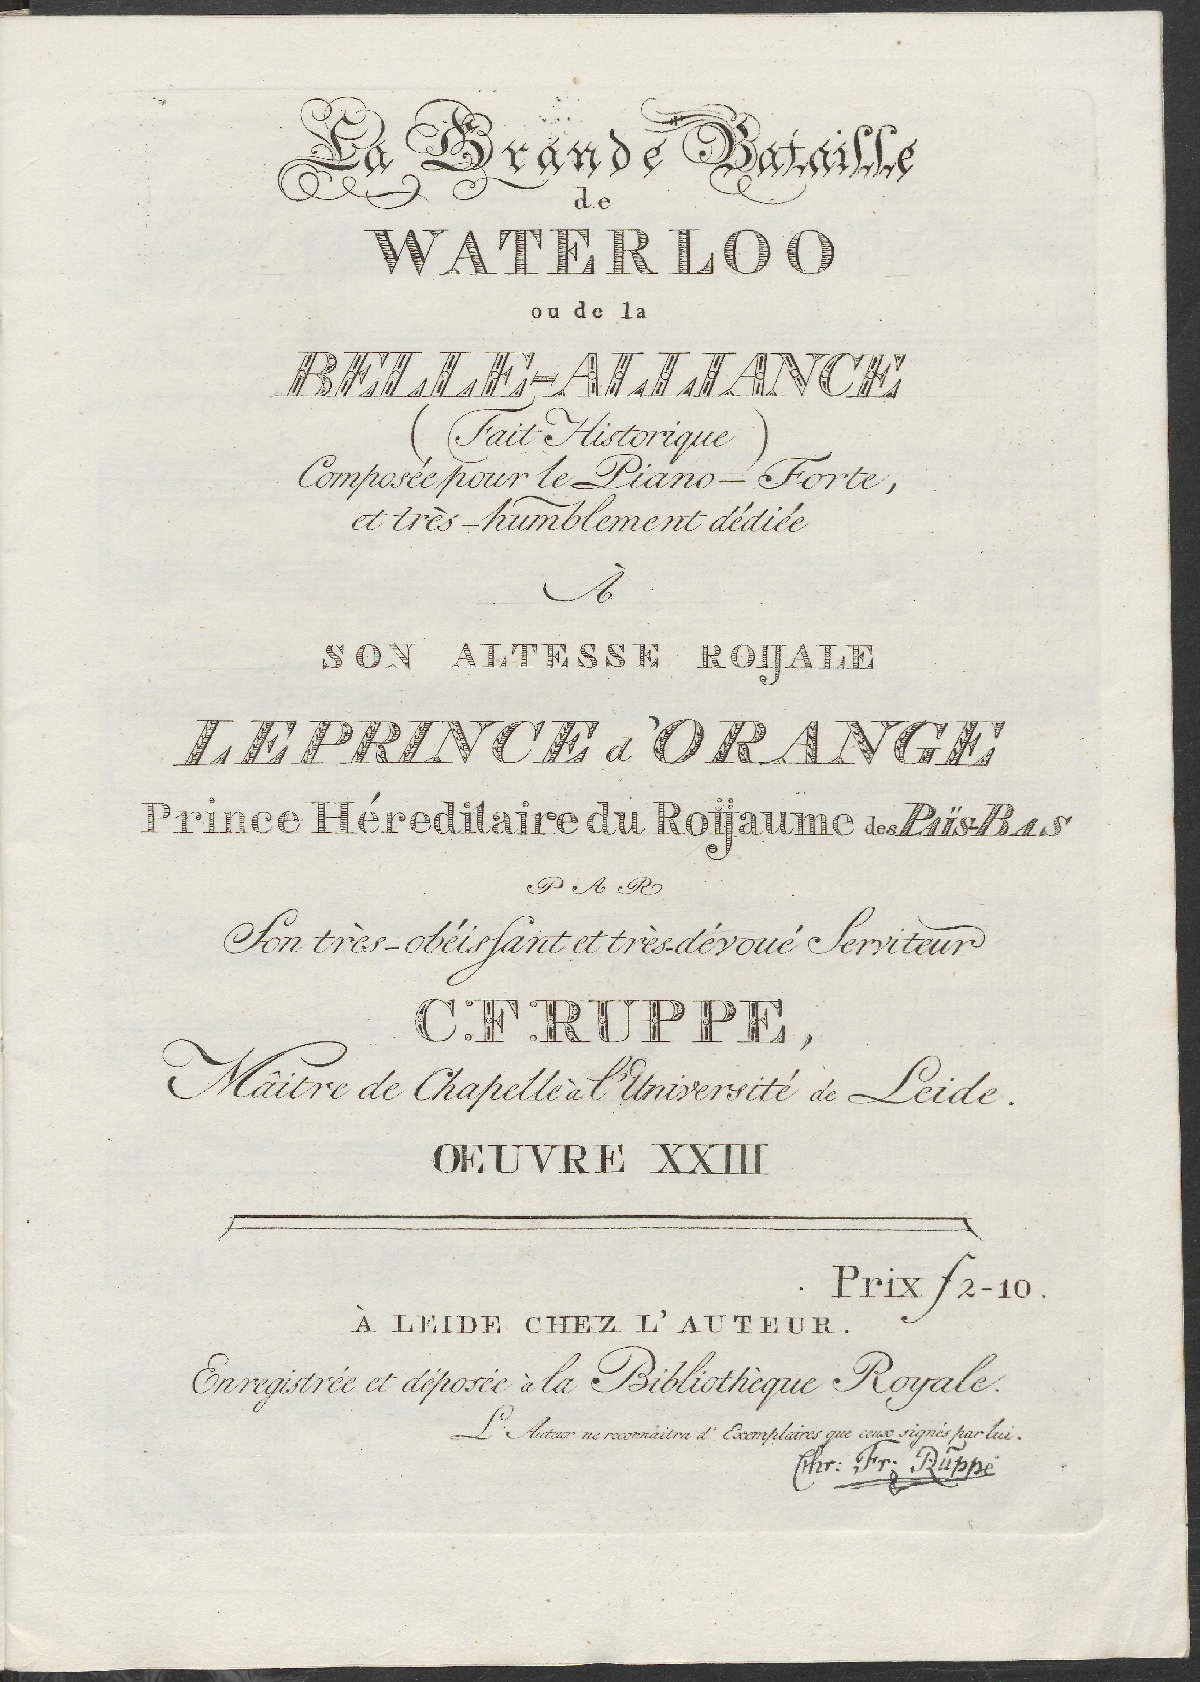 La Grande Bataille
de
WATERLOO
ou de la
BELLE-ALLIANCE
(Fait Historique)
Composée pour le Piano-Forte,
et très-humblement dédiée
À
SON ALTESSE ROIJALE
LE PRINCE d'ORANGE
Prince Héreditaire du Roijaume des Païs-Bas
PAR
Son très-obéissant et très-dévoué Serviteur
C:F:RUPPE,
Mâitre de Chapelle à l'Université de Leide.
ŒUVRE XXIII
Prix ƒ 2-10.
À LEIDE CHEZ L'AUTEUR.
Enregistrée et déposée à la Bibliothèque Royale.
L'Auteur ne reconnaitra d'Exemplaires que ceux signés par lui.
Chr: Fr: Ruppe